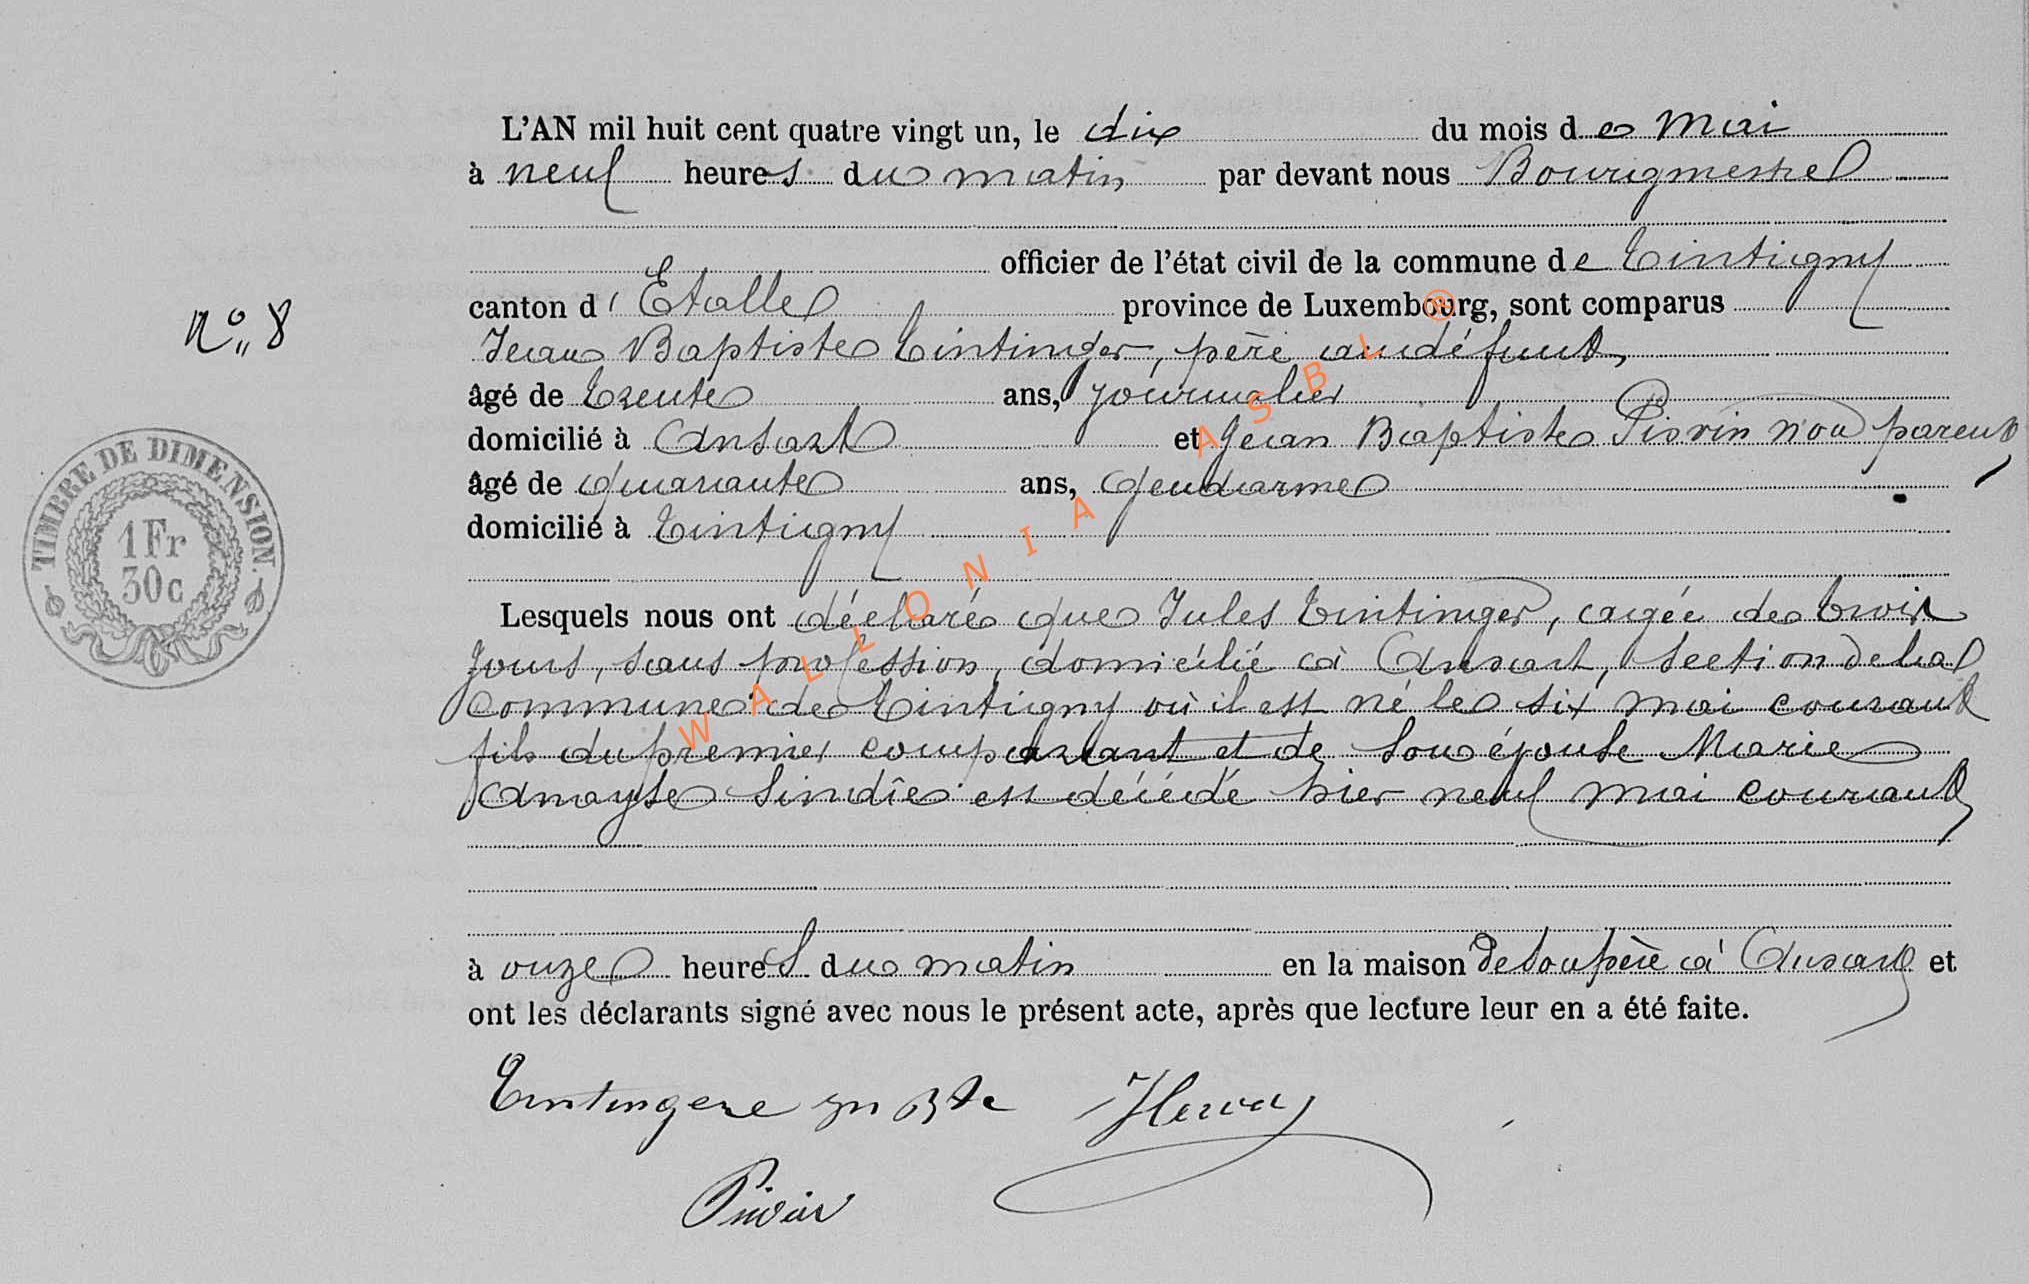 L'AN mil huit cent quatre vingt un, le dix du mois de Mai
à neuf heures du matin par devant nous Bourgmestre
officier de l'état civil de la commune de Tintigny
canton d'Etalle province de Luxembourg, sont comparus
N° 8
Jean Baptiste Tintinger, père au défunt,
âgé de trente ans, journalier
domicilié à Ansart et Jean Baptiste non parent
âgé de quarante ans, Gendarme
domicilié à Tintigny
TIMBRE DE DIMENSION.
1 Fr
30c
Lesquels nous ont déclaré que Jules Tintinger, agée de trois
jours, sans profession, domicilié à Ansart, section de la
Commune de Tintigny où il est né le six mai courant
fils du premier comparant et de son épouse Marie
est décédé hier neuf mai courant
à onze heures du matin en la maison de son père à Ansart et
ont les déclarants signé avec nous le présent acte, après que lecture leur en a été faite.
Tintingere Bte
WALLONIA ASBL ®